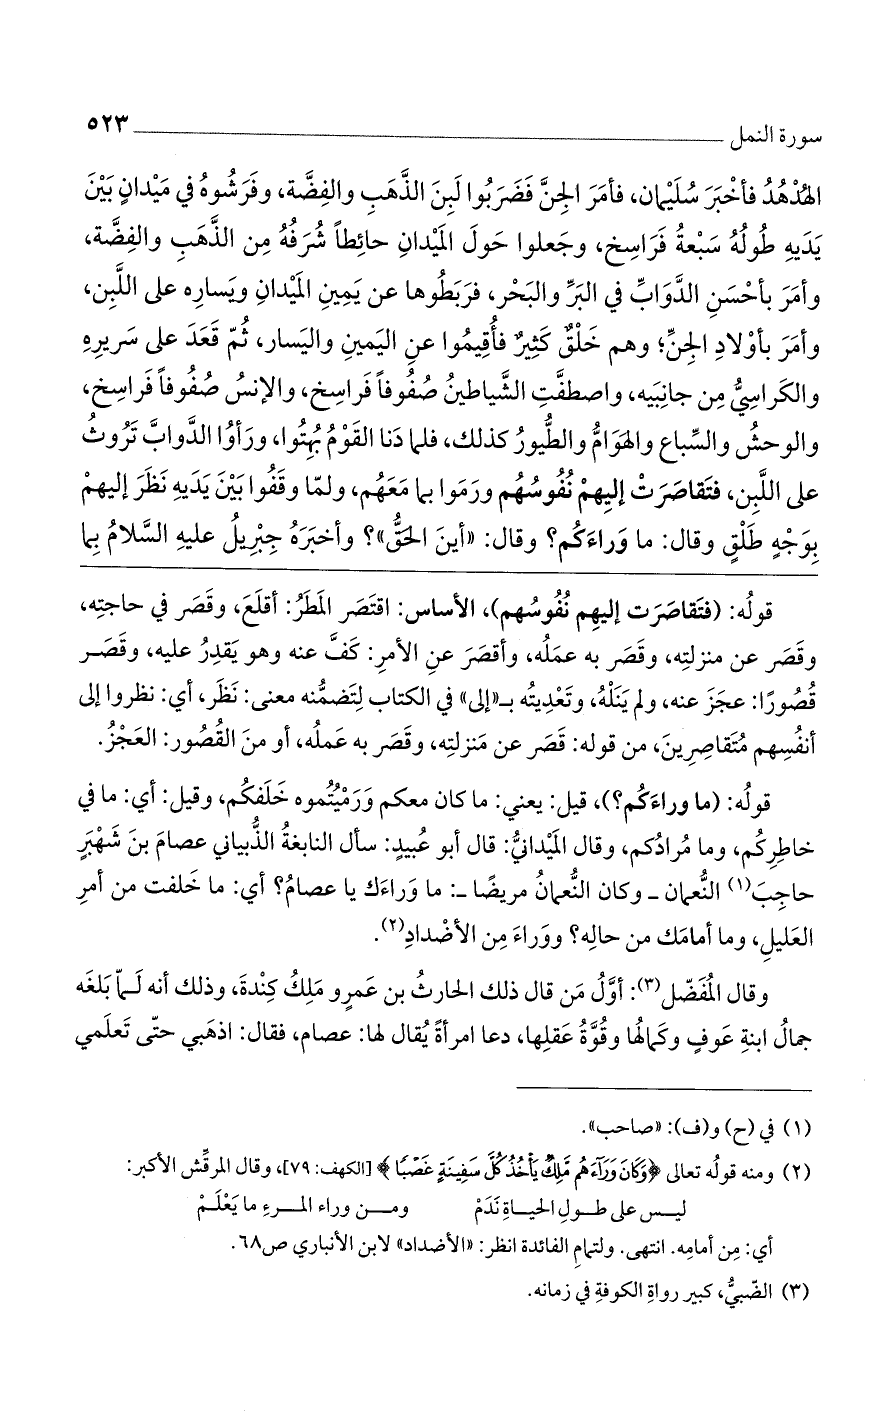 سورة النمل ٥٢٣
الهُدْهُدُ فأخْبَرَ سُلَيْمان، فأمَرَ الجِنَّ فَضَرَبُوا لَبِنَ الذَّهَبِ والفِضَّة، وفَرَشُوهُ في مَيْدانٍ بَيْنَ
يَدَيهِ طُولُهُ سَبْعةُ فَرَاسِخ، وجَعلوا حَولَ المَيْدانِ حائِطاً شُرَفُهُ مِن الذَّهَبِ والفِضَّة،
وأمَرَ بأحْسَنِ الدَّوَابِّ في البَرِّ والبَحْر، فرَبَطُوها عن يَمِينِ المَيْدانِ ويَسارِه على اللَّبِن،
وأمَرَ بأوْلادِ الجِنِّ؛ وهم خَلْقٌ كَثِيرٌ فأُقِيمُوا عنِ اليَمينِ واليَسار، ثُمّ قَعَدَ على سَريرِهِ
والكَراسِيُّ مِن جانِبَيه، واصطفَّتِ الشَّياطينُ صُفُوفاً فَراسِخ، والإنسُ صُفُوفاً فَراسِخ،
والوحشُ والسِّباع والهَوَامُّ والطُّيورُ كذلك، فلما دَنا القَوْمُ بُهِتُوا، ورَأَوُا الدَّوابَّ تَرُوثُ
على اللَّبِن، فتَقاصَرَتْ إليهِمْ نُفُوسُهُم ورَمَوا بما مَعَهُم، ولمّا وقَفُوا بَيْنَ يَدَيهِ نَظَرَ إليهمْ
بِوَجْهٍ طَلْقٍ وقال: ما وَراءَكُم؟ وقال: «أينَ الحُقُّ»؟ وأخبَرَهُ جِبْرِيلُ عليهِ السَّلامُ بما
قولُه: (فتَقاصَرَت إليهِم نُفُوسُهم)، الأساس: اقتَصَر المَطَرُ: أقلَعَ، وقَصَر في حاجتِه،
وقَصَر عن منزلتِه، وقَصَر به عمَلُه، وأقصَرَ عنِ الأمرِ: كَفَّ عنه وهو يَقدِرُ عليه، وقَصَر
قُصُورًا: عجَزَ عنه، ولم يَنَلْهُ، وتَعْدِيتُه بـ«إلى» في الكتاب لِتَضمُّنه معنى: نَظَر، أي: نظروا إلى
أنفُسِهم مُتَقاصِرِينَ، من قوله: قَصَر عن مَنزلتِه، وقَصَر به عَملُه، أو منَ القُصُور: العَجْزُ.
قولُه: (ما وراءَكُم؟)، قيل: يعني: ما كان معكم وَرَمْيُتُموه خَلَفكُم، وقيل: أي: ما في
خاطِركُم، وما مُرادُكم، وقال المَيْدانيُّ: قال أبو عُبيدٍ: سأل النابغةُ الذُّبياني عصامَ بنَ شَهْبَرٍ
حاجِبَ(١) النُّعمان ـ وكان النُّعمانُ مريضًا ـ: ما وَراءَك يا عصامُ؟ أي: ما خَلفت من أمرِ
العَليلِ، وما أمامَك من حالِه؟ ووَراءَ مِن الأضْدادِ(٢).
وقال المُفَضّل(٣): أوَّلُ مَن قال ذلك الحارثُ بن عَمرٍو مَلِكُ كِنْدةَ، وذلك أنه لَـمّا بَلغَه
جمالُ ابنةِ عَوفٍ وكمالُها وقُوَّةُ عَقلِها، دعا امرأةً يُقال لها: عصام، فقال: اذهَبي حتّى تَعلَمي
(١) في (ح) و(ف): «صاحب».
(٢) ومنه قولُه تعالى ﴿وَكَانَ وَرَآءَهُم مَّلِكٌ يَأْخُذُ كُلَّ سَفِينَةٍ غَصْبًا﴾ [الكهف: ٧٩]، وقال المرقِّش الأكبر:
ليس على طولِ الحياةِ نَدَمْ ومن وراء المرءِ ما يَعْلَمْ
أي: مِن أمامِه. انتهى. ولتمامِ الفائدة انظر: «الأضداد» لابن الأنباري ص٦٨.
(٣) الضّبيُّ، كبير رواةِ الكوفةِ في زمانه.